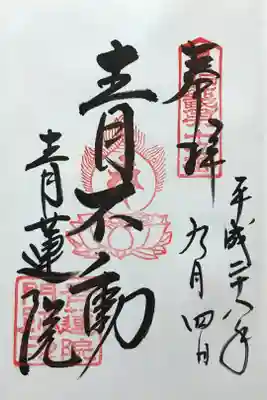 奉拝
平成二十八年
九月四日
青不動
青蓮院